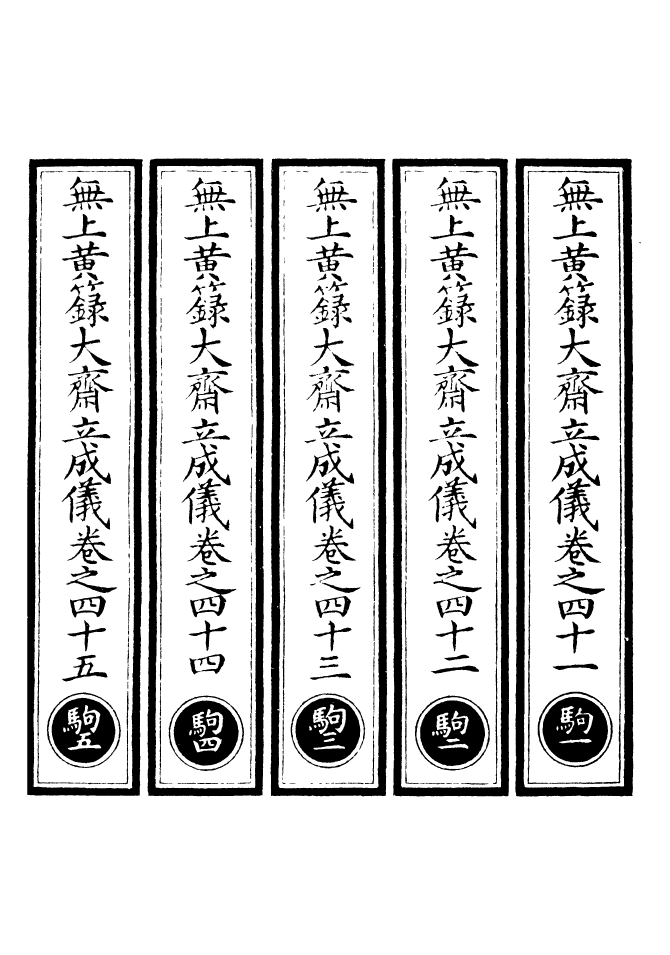 無上黃籙大齋立成儀卷之四十一
駒一
無上黃籙大齋立成儀卷之四十二
駒二
無上黃籙大齋立成儀卷之四十三
駒三
無上黃籙大齋立成儀卷之四十四
駒四
無上黃籙大齋立成儀卷之四十五
駒五